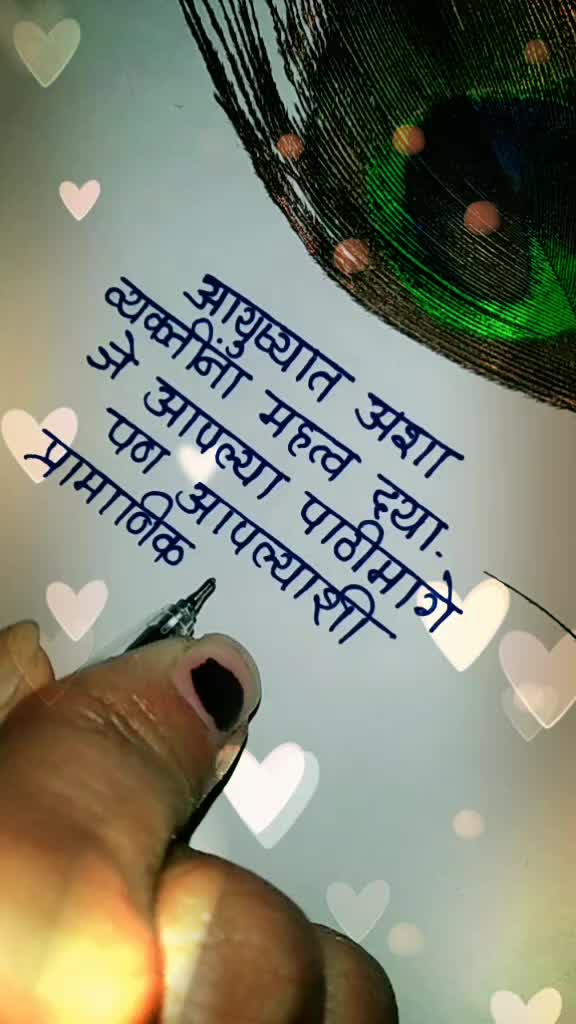 आयुष्यात अशा
व्यक्तींना महत्व द्या.
जे आपल्या पाठीमागे
पण आपल्याशी
प्रामानिक